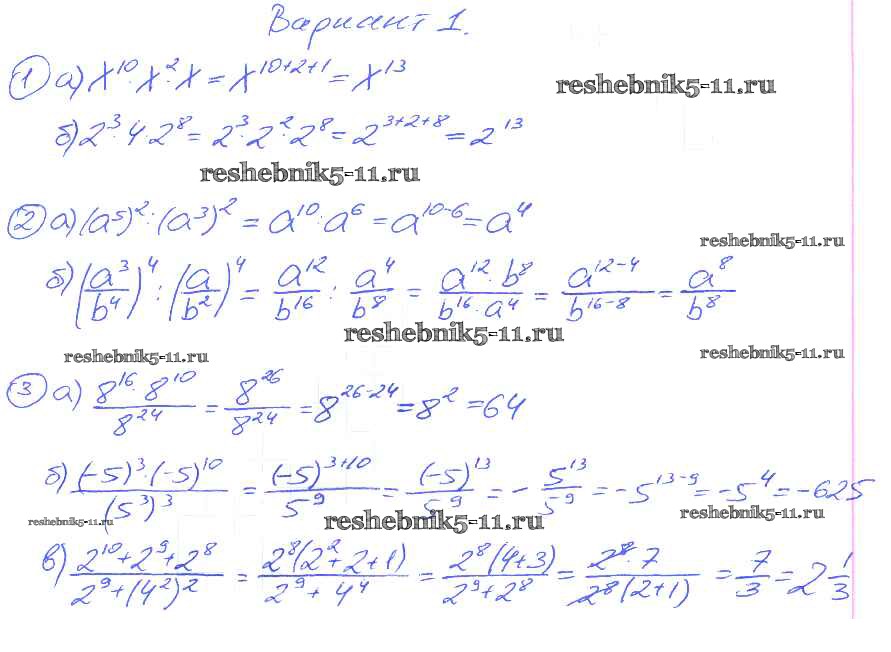 Вариант 1.
① а) x¹⁰ · x² · x = x¹⁰⁺²⁺¹ = x¹³
reshebnik5-11.ru
б) 2³ · 4 · 2⁸ = 2³ · 2² · 2⁸ = 2³⁺²⁺⁸ = 2¹³
reshebnik5-11.ru
② а) (a⁵)² : (a³)² = a¹⁰ : a⁶ = a¹⁰⁻⁶ = a⁴
reshebnik5-11.ru
б) (a³/b⁴)⁴ : (a/b²)⁴ = a¹²/b¹⁶ : a⁴/b⁸ = (a¹² · b⁸)/(b¹⁶ · a⁴) = a¹²⁻⁴/b¹⁶⁻⁸ = a⁸/b⁸
reshebnik5-11.ru
reshebnik5-11.ru
reshebnik5-11.ru
③ а) (8¹⁶ · 8¹⁰)/8²⁴ = 8²⁶/8²⁴ = 8²⁶⁻²⁴ = 8² = 64
б) ((-5)³ · (-5)¹⁰)/(5³)³ = (-5)³⁺¹⁰/5⁹ = (-5)¹³/5⁹ = - 5¹³/5⁹ = -5¹³⁻⁹ = -5⁴ = -625
reshebnik5-11.ru
reshebnik5-11.ru
reshebnik5-11.ru
в) (2¹⁰ + 2⁹ + 2⁸)/(2⁹ + (4²)²) = 2⁸(2² + 2 + 1)/(2⁹ + 4⁴) = 2⁸(4+3)/(2⁹ + 2⁸) = (2⁸ · 7)/(2⁸(2+1)) = 7/3 = 2 1/3